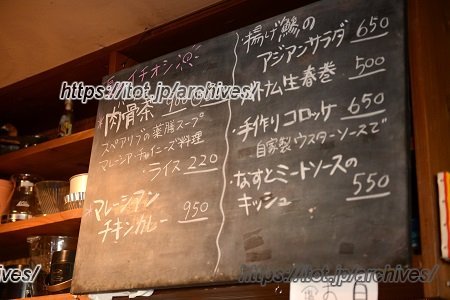 イチオシ
https://itot.jp/archives/
*肉骨茶 900
スペアリブの薬膳スープ
マレーシア・チャイニーズ料理
・ライス 220
*マレーシアン
チキンカレー 950
・揚げ鯵の
アジアンサラダ 650
トナム生春巻 500
https://itot.jp/archives/
・手作りコロッケ 650
自家製ウスターソースで
・なすとミートソースの
キッシュ 550
archives/
https://itot.jp/archives/